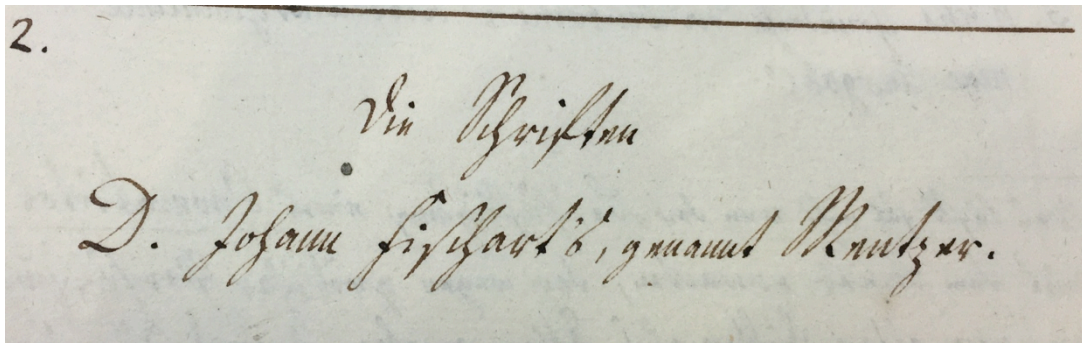 2.
Die Schriften
D. Johann Fischart's, genannt Mentzer.